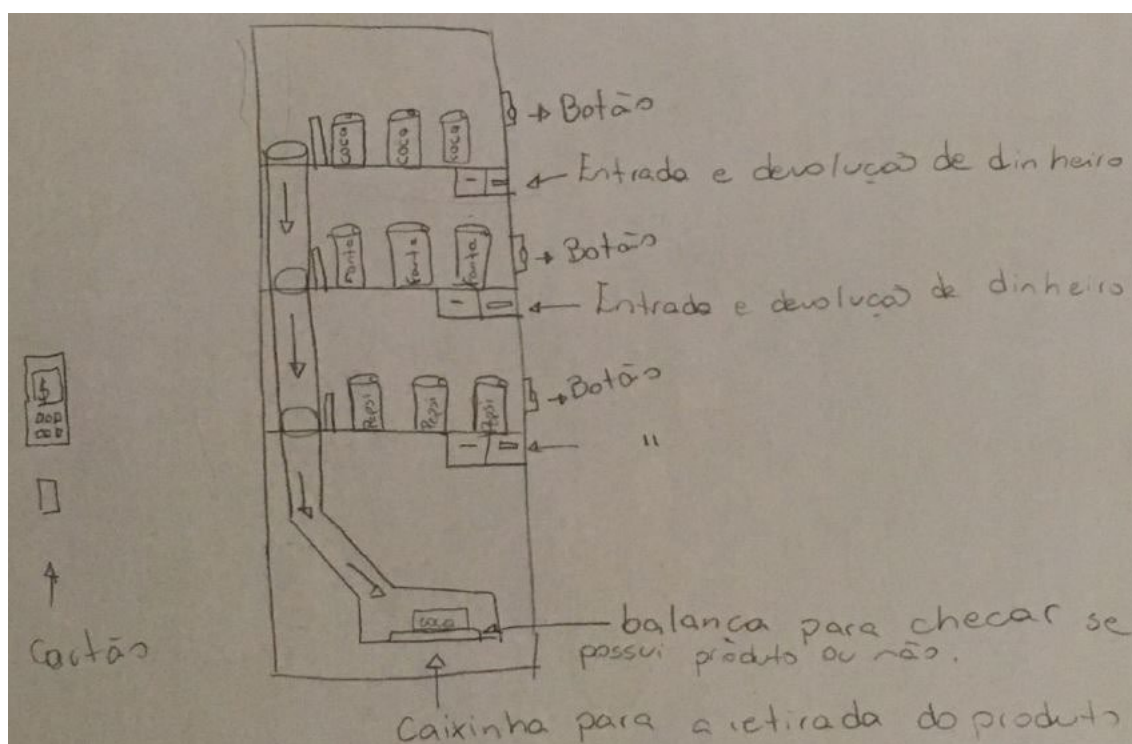 coca coca coca
→ Botão
← Entrada e devolução de dinheiro
Fanta Fanta Fanta
→ Botão
← Entrada e devolução de dinheiro
Pepsi Pepsi Pepsi
→ Botão
← "
$
Cartão
coca
balança para checar se
possui produto ou não.
Caixinha para a retirada do produto